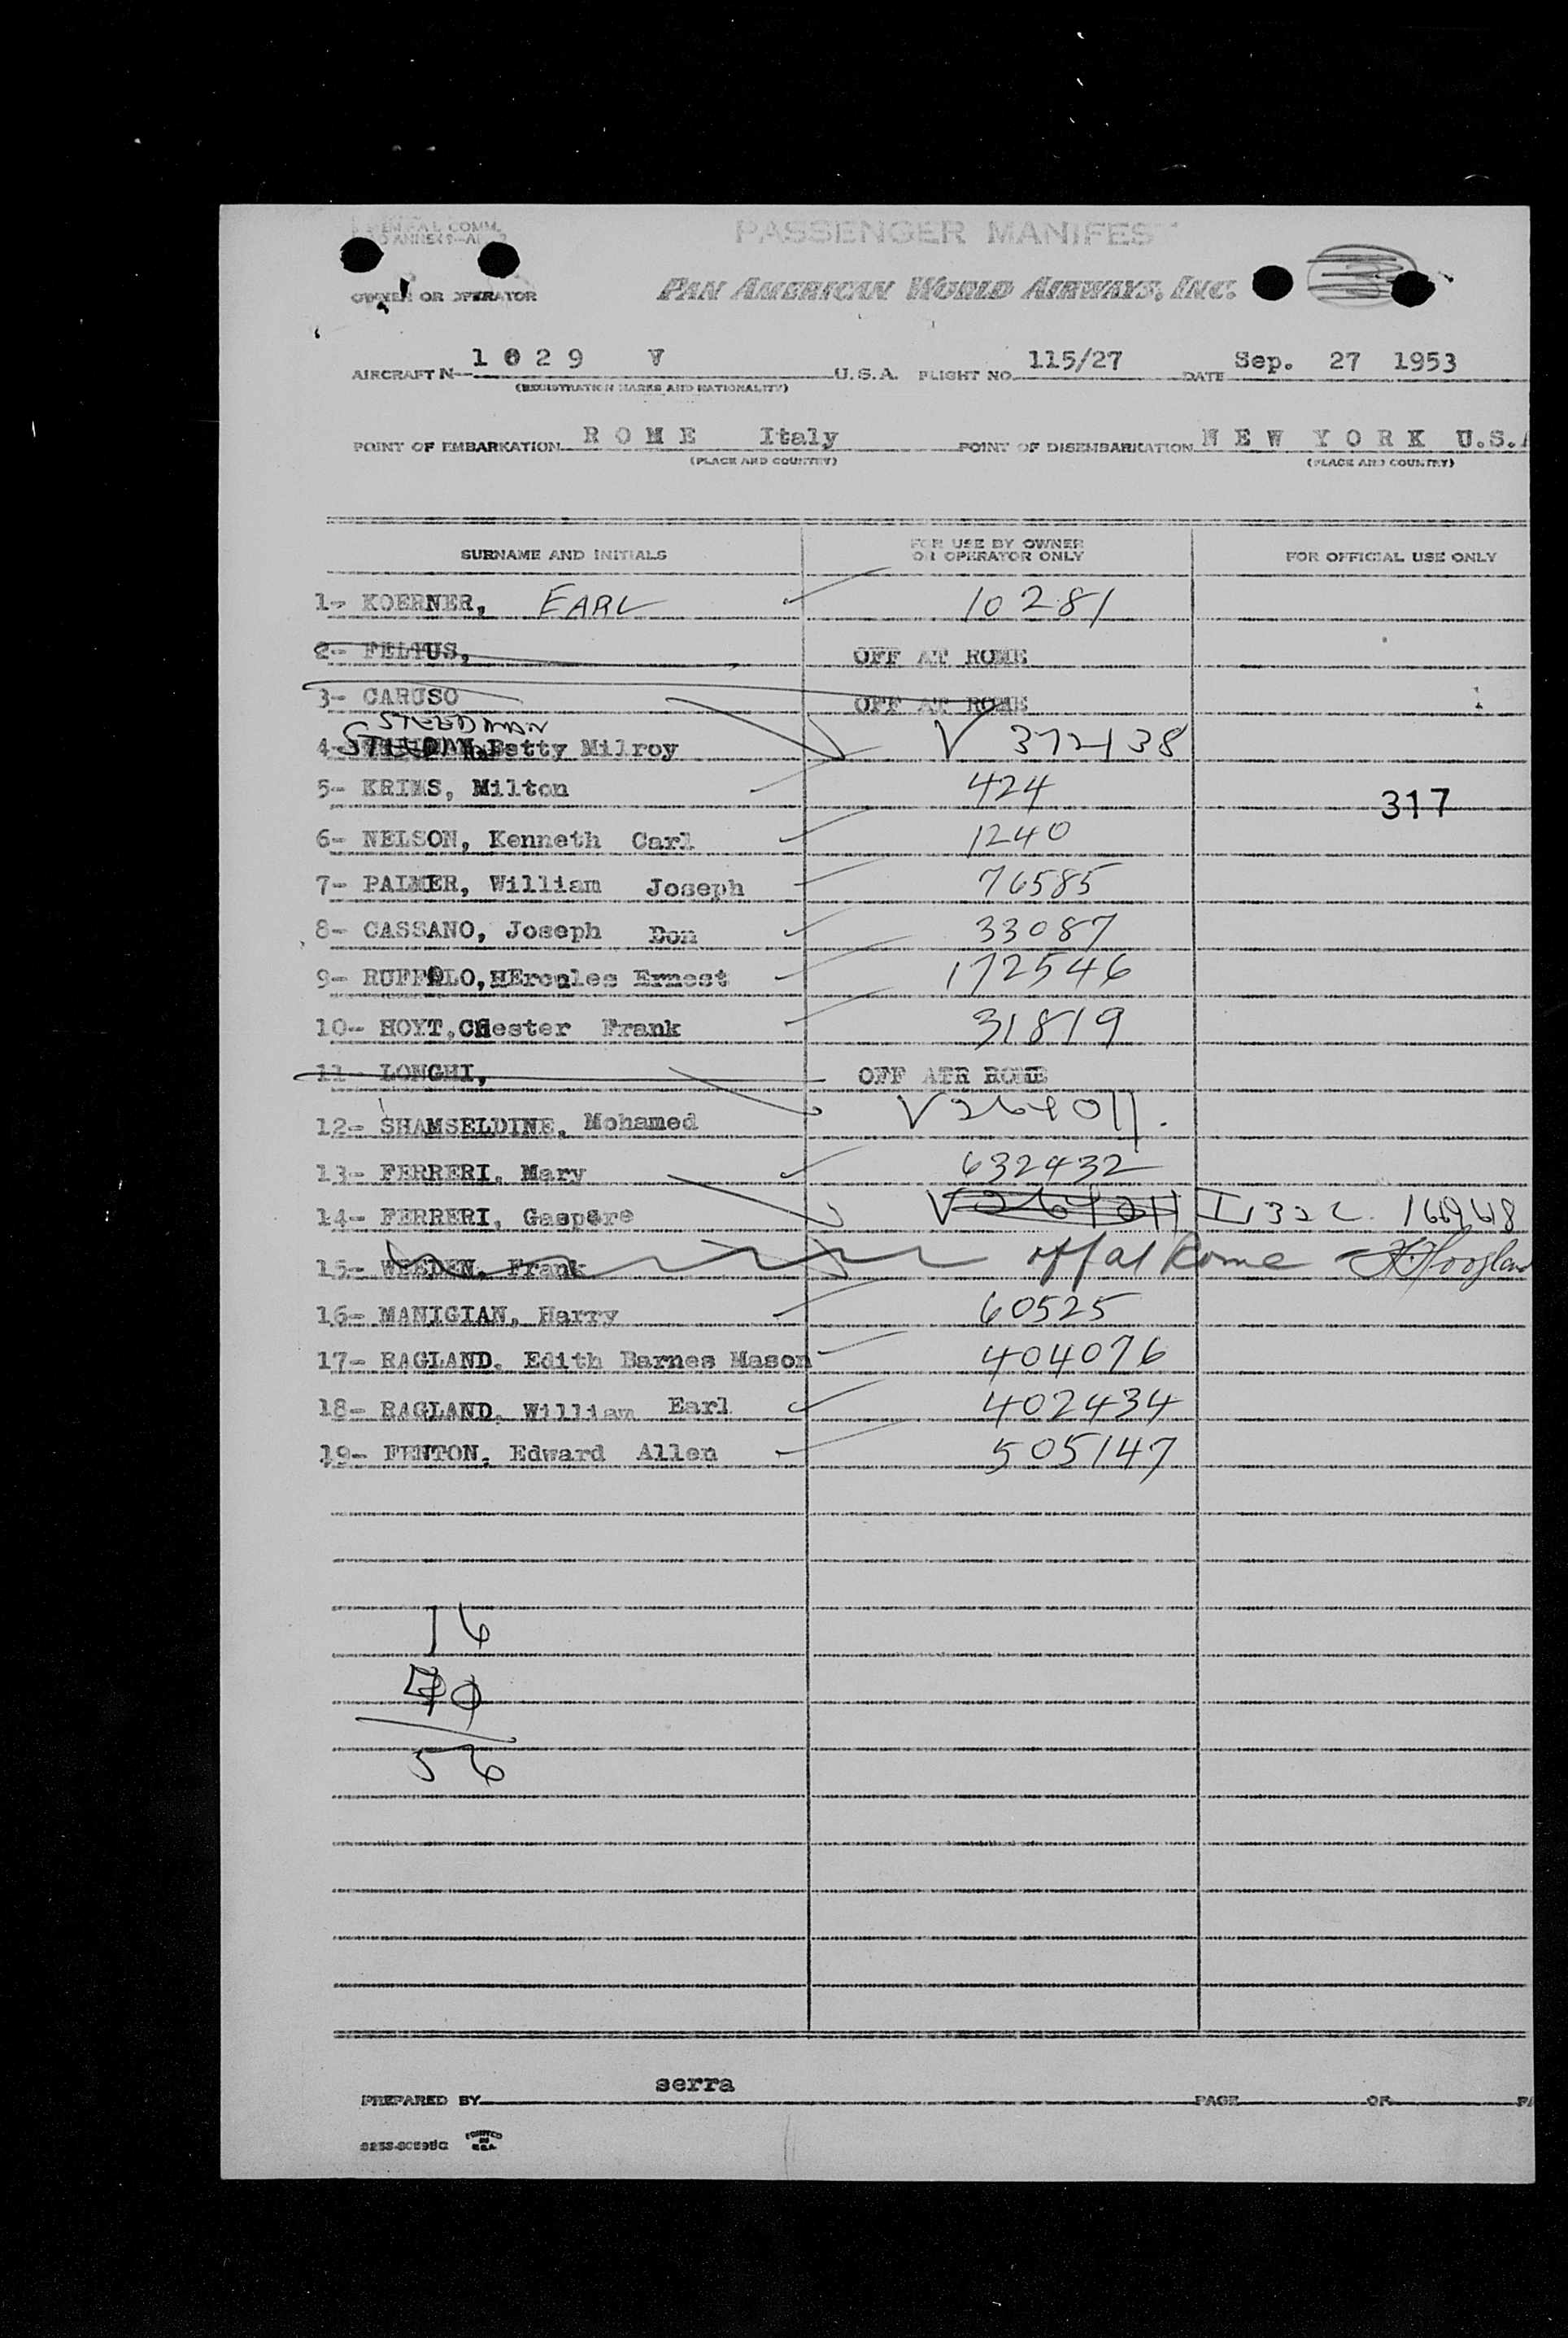 PASSENGER MANIFEST
OWNER OR OPERATOR PAN AMERICAN WORLD AIRWAYS, INC.
AIRCRAFT N- 1 0 2 9 V U.S.A. FLIGHT NO. 115/27 DATE Sep. 27 1953
(REGISTRATION MARKS AND NATIONALITY)
POINT OF EMBARKATION R O M E Italy POINT OF DISEMBARKATION N E W Y O R K U.S.A
(PLACE AND COUNTRY) (PLACE AND COUNTRY)
SURNAME AND INITIALS FOR USE BY OWNER OR OPERATOR ONLY FOR OFFICIAL USE ONLY
1- KOERNER, EARL 10281
2- FELTUS, OFF AT ROME
3- CARUSO OFF AT ROME
STEEDMAN
4- Betty Milroy V 372138
5- KRIMS, Milton 424 317
6- NELSON, Kenneth Carl 1240
7- PALMER, William Joseph 76585
8- CASSANO, Joseph Don 33087
9- RUFFOLO, HErcules Ernest 172546
10- HOYT, CHester Frank 31819
11- LONGHI, OFF ATR ROME
12- SHAMSELDINE, Mohamed V264011.
13- FERRERI, Mary 632432
14- FERRERI, Gaspare
15- Frank off at Rome
16- MANIGIAN, Harry 60525
17- RAGLAND, Edith Barnes Mason 404076
18- RAGLAND, William Earl 402434
19- FENTON, Edward Allen 505147
16
40
56
serra
PREPARED BY PAGE OF
PRINTED IN U.S.A.